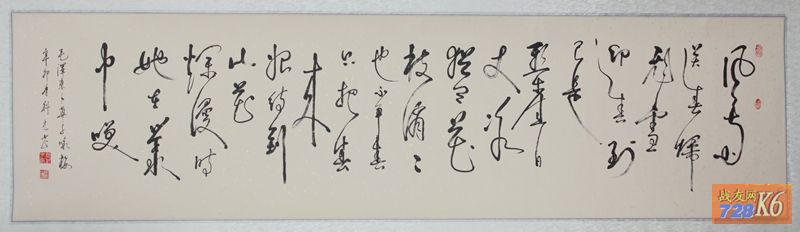 风雨
送春歸
飛雪
迎春到
已是
悬崖百
丈冰
犹有花
枝俏〻
也不争春
只把春
来
报待到
山花
烂漫时
她在叢
中笑
毛泽东卜算子咏梅
辛卯年
战友网
728
K6